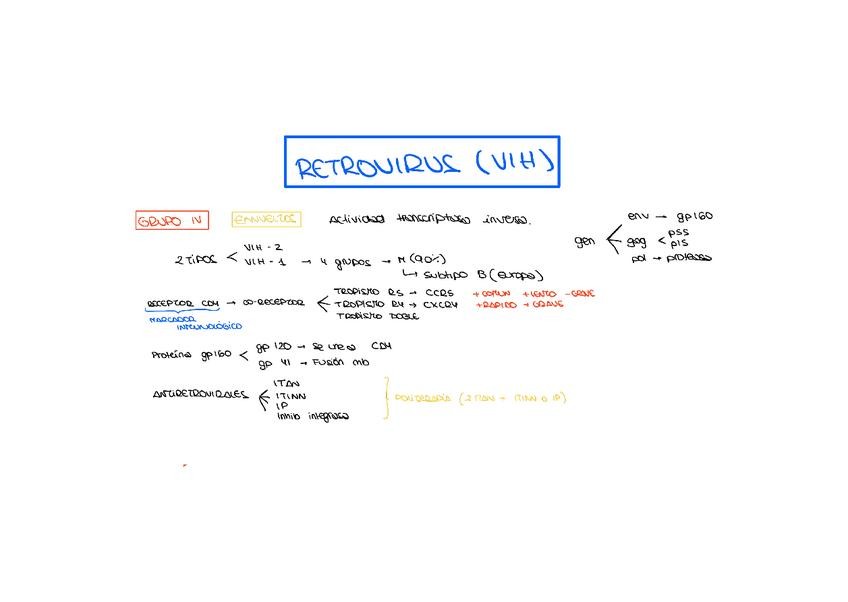 RETROVIRUS (VIH)
GRUPO IV ENVUELTOS Actividad transcriptasa inversa.
gen env → gp160
gag < p55
p15
pol → proteasa
2 TIPOS < VIH - 2
VIH - 1 → 4 grupos → M (90%)
↳ subtipo B (europa)
RECEPTOR CD4 → CO-RECEPTOR
TROPISMO R5 → CCR5 + COMUN + LENTO - GRAVE
TROPISMO R4 → CXCR4 + RAPIDO + GRAVE
TROPISMO DOBLE
MARCADOR
INMUNOLÓGICO
Proteína gp160 < gp 120 → se une a CD4
gp 41 → Fusión mb
ANTIRETROVIRALES
ITAN
ITINN
IP
Inhib integrasa
POLITERAPIA (2 ITAN + ITINN o IP)